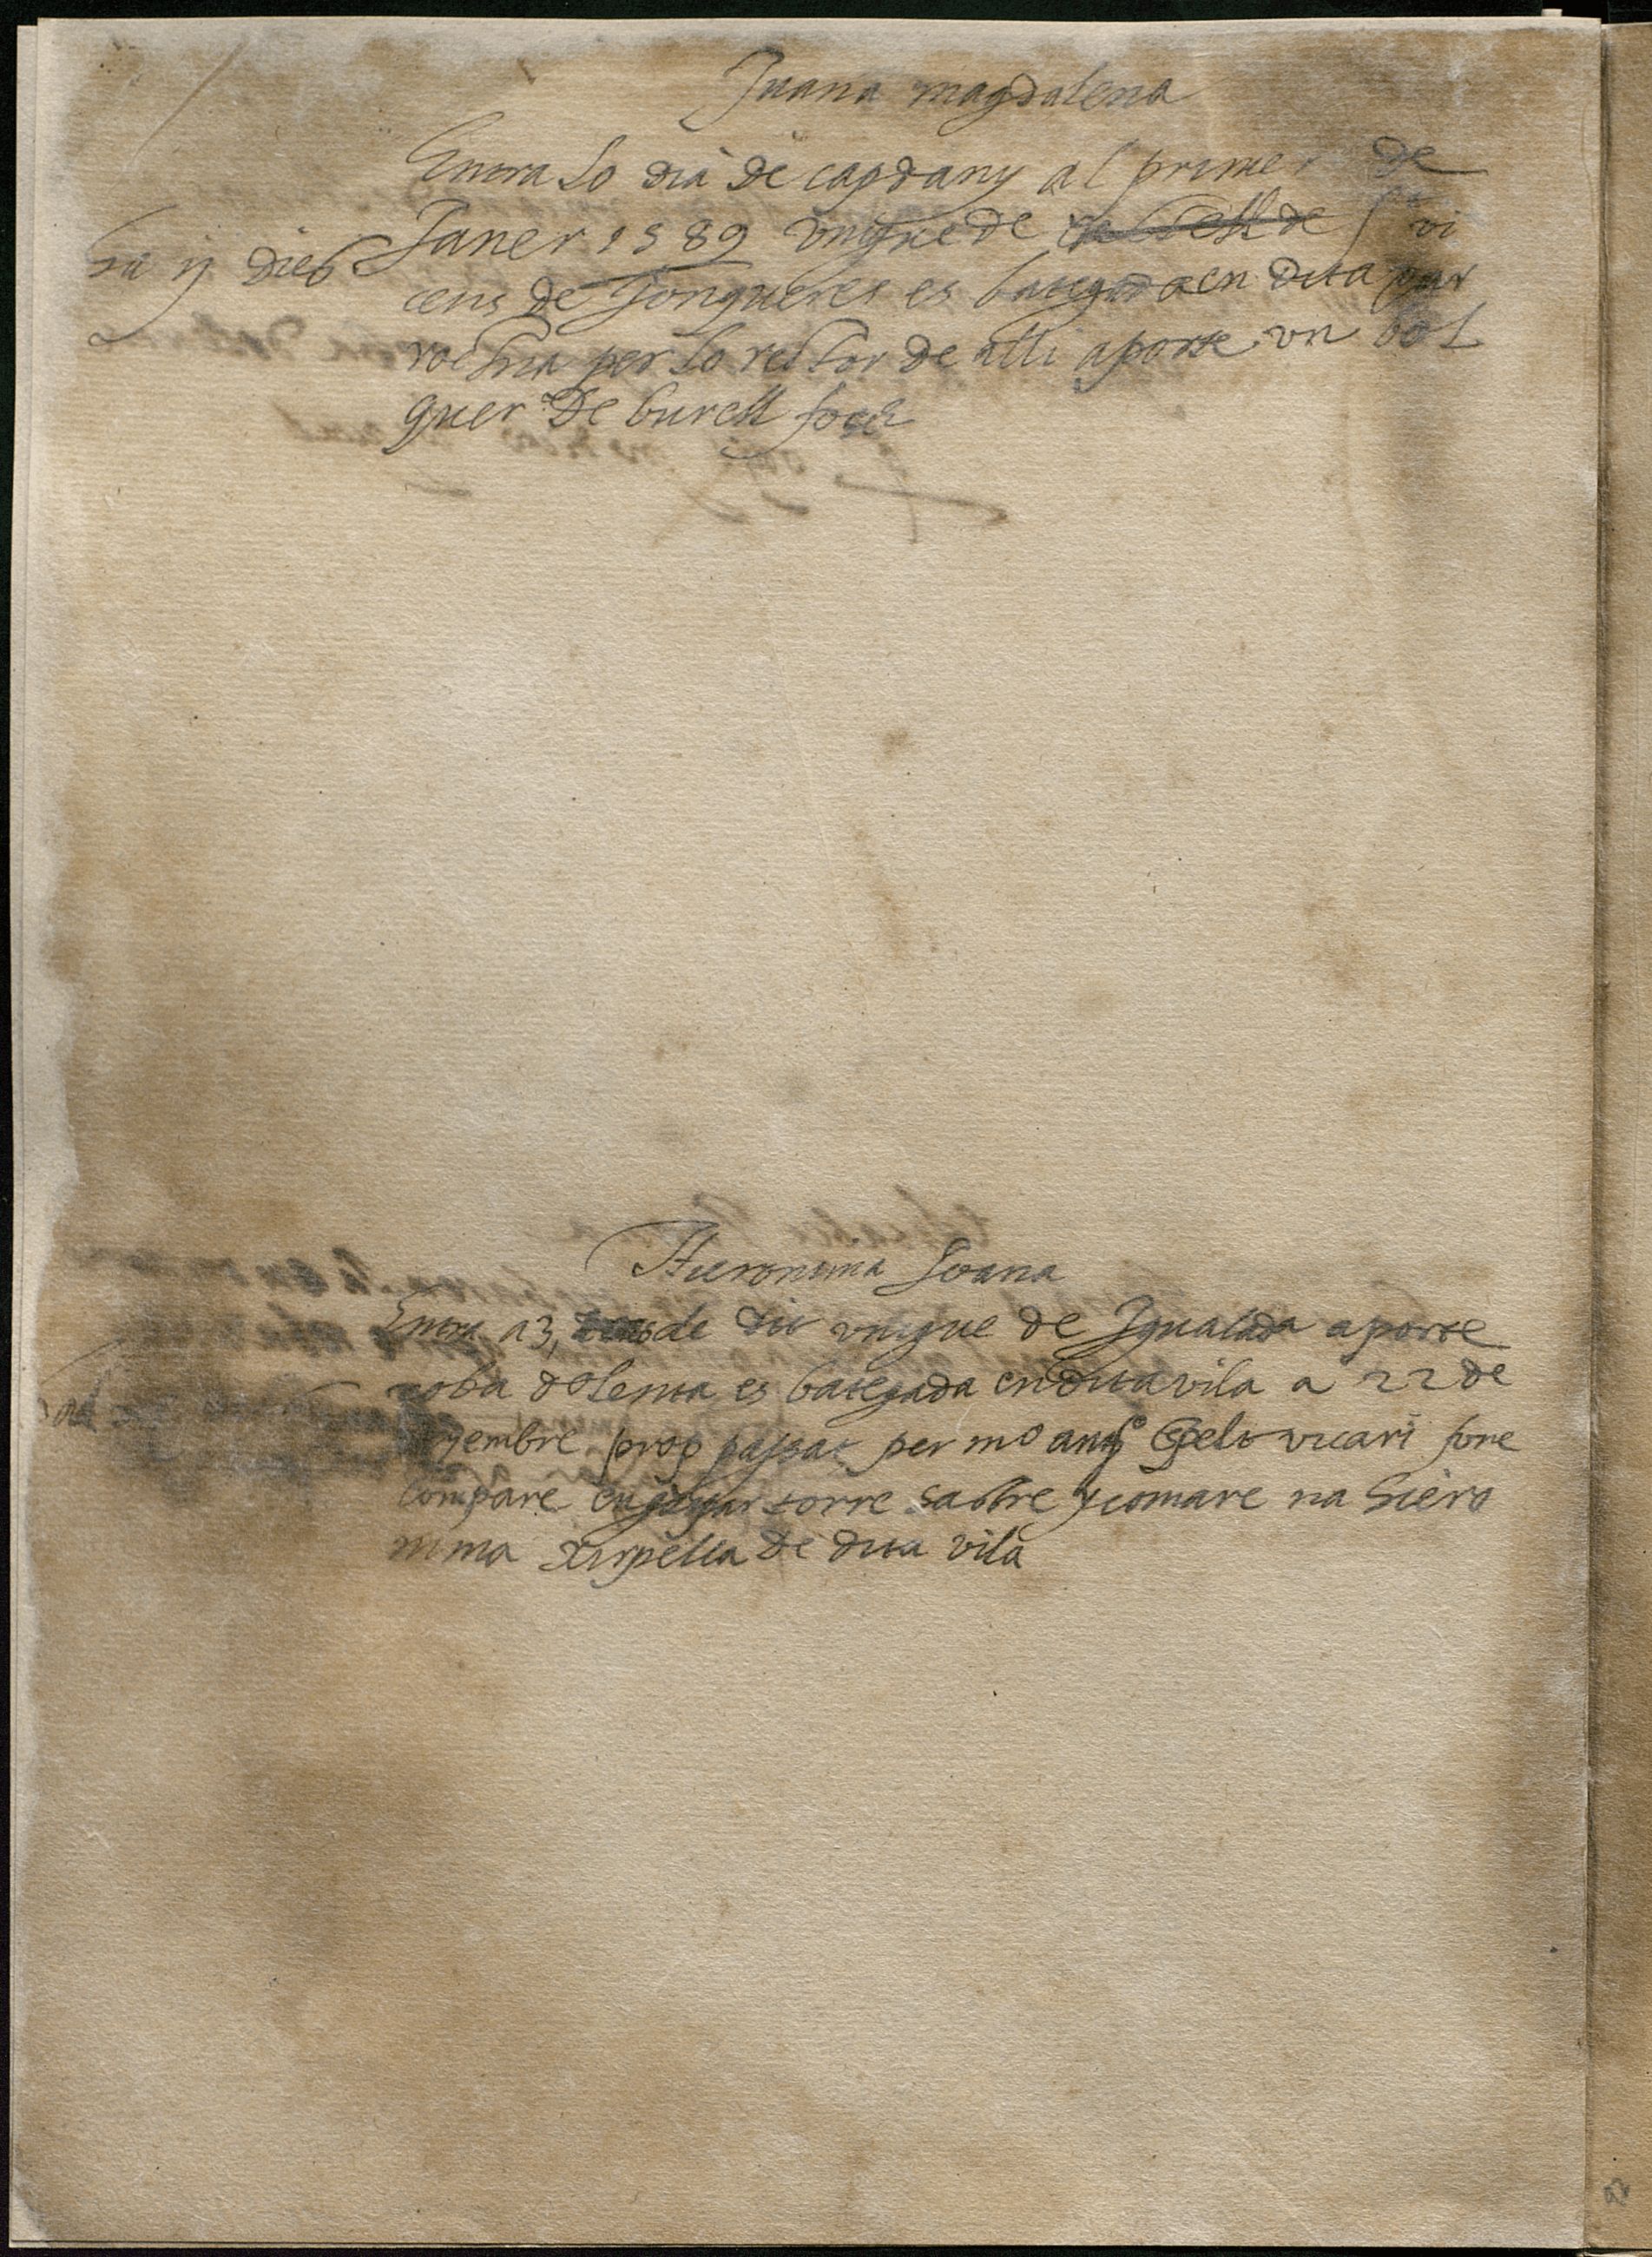 Juana magdalena
Entra lo dia de capdany al primer de
Janer 1589 vingue de St vi
ha ij dies
cens de Jonqueres es bategada en dita par
rochia per lo rector de alli aporte vn bol
quer de burell
Hieronima Joana
Entra a 3, de dit vingue de Igualada aporte
roba dolenta es bategada en dita vila a 22 de
embre prop passat per mo vicari fone
compare torre sastre y comare na Hiero
nima Xirpella de dita vila